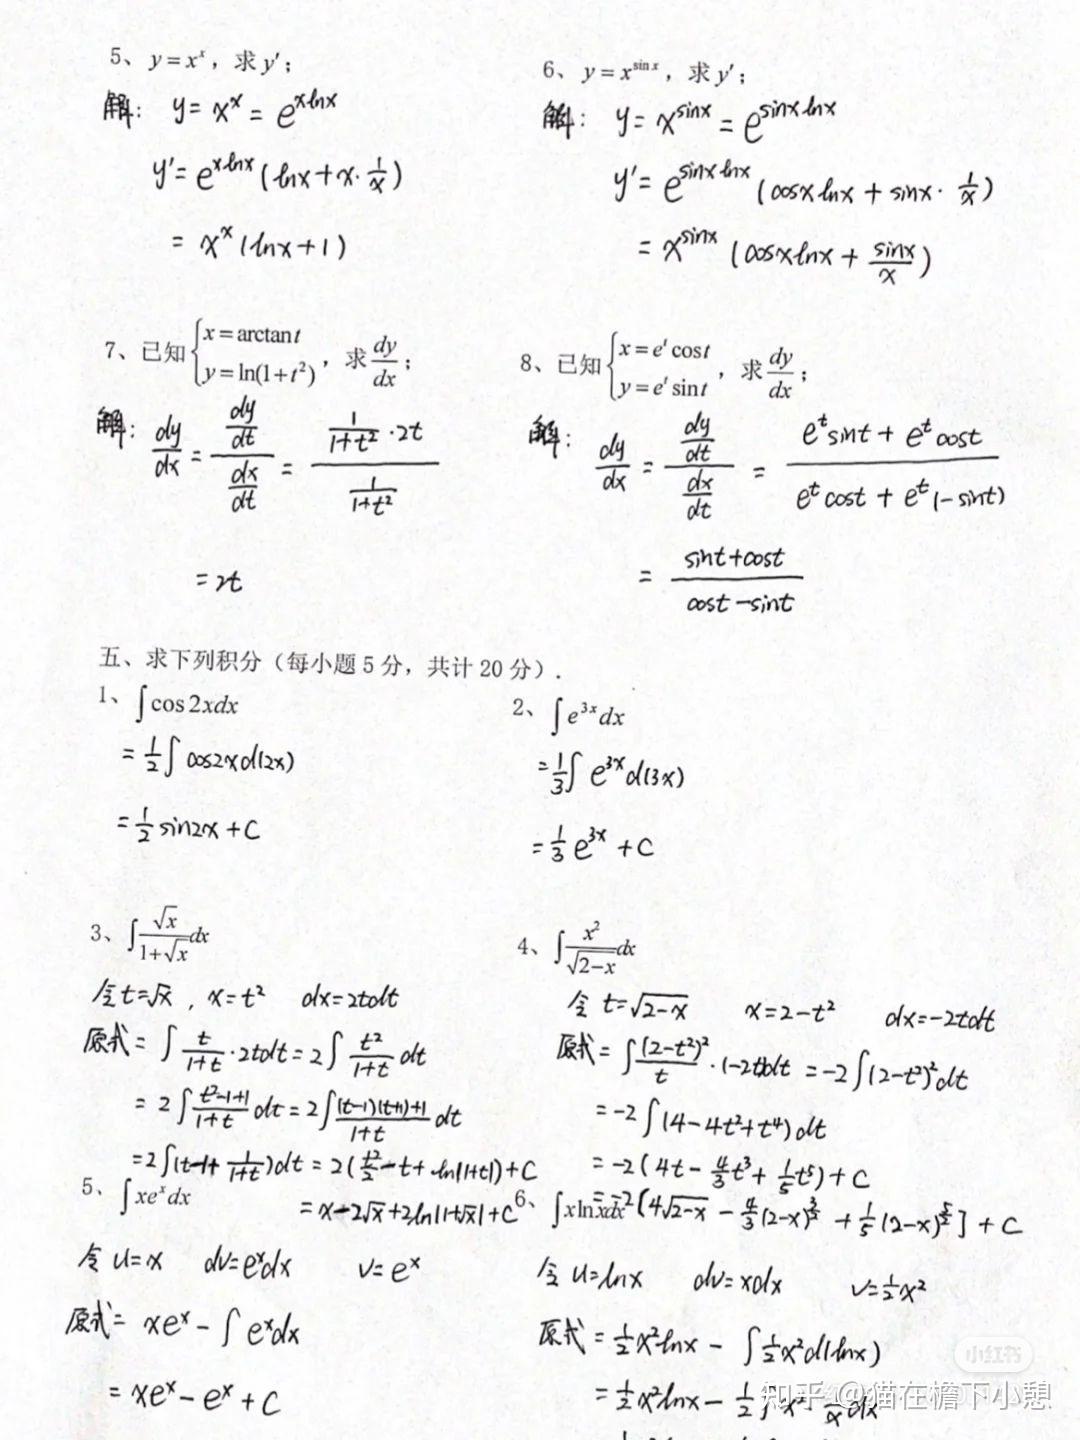 5、y = x^x，求 y′；
解：y = x^x = e^{xlnx}
y′ = e^{xlnx}(lnx + x·1/x)
= x^x(lnx+1)
6、y = x^{sin x}，求 y′；
解：y = x^{sinx} = e^{sinxlnx}
y′ = e^{sinxlnx}(cosxlnx + sinx·1/x)
= x^{sinx}(cosxlnx + sinx/x)
7、已知 {x = arctan t, y = ln(1+t²)，求 dy/dx；
解：dy/dx = (dy/dt)/(dx/dt) = (1/(1+t²)·2t)/(1/(1+t²))
= 2t
8、已知 {x = e^t cos t, y = e^t sin t，求 dy/dx；
解：dy/dx = (dy/dt)/(dx/dt) = (e^t sint + e^t cost)/(e^t cost + e^t(-sint))
= (sint+cost)/(cost-sint)
五、求下列积分（每小题 5 分，共计 20 分）.
1、∫cos 2xdx
= 1/2 ∫cos2xd(2x)
= 1/2 sin2x + C
2、∫e^{3x}dx
= 1/3 ∫e^{3x}d(3x)
= 1/3 e^{3x} + C
3、∫√x/(1+√x) dx
令 t=√x，x=t² dx=2tdt
原式 = ∫t/(1+t)·2tdt = 2∫t²/(1+t) dt
= 2∫(t²-1+1)/(1+t) dt = 2∫((t-1)(t+1)+1)/(1+t) dt
= 2∫(t-1+1/(1+t))dt = 2(t²/2 - t + ln|1+t|) + C
= x-2√x+2ln|1+√x|+C
4、∫x²/√(2-x) dx
令 t=√(2-x) x=2-t² dx=-2tdt
原式 = ∫(2-t²)²/t·(-2t)dt = -2∫(2-t²)²dt
= -2∫(4-4t²+t⁴)dt
= -2(4t - 4/3 t³ + 1/5 t⁵) + C
= -2[4√(2-x) - 4/3 (2-x)^{3/2} + 1/5 (2-x)^{5/2}] + C
5、∫xe^x dx
令 u=x dv=e^x dx v=e^x
原式 = xe^x - ∫e^x dx
= xe^x - e^x + C
6、∫x ln xdx
令 u=lnx dv=xdx v=1/2 x²
原式 = 1/2 x²lnx - ∫1/2 x²d(lnx)
= 1/2 x²lnx - 1/2 ∫x²·1/x dx
小红书
知乎 @猫在檐下小憩